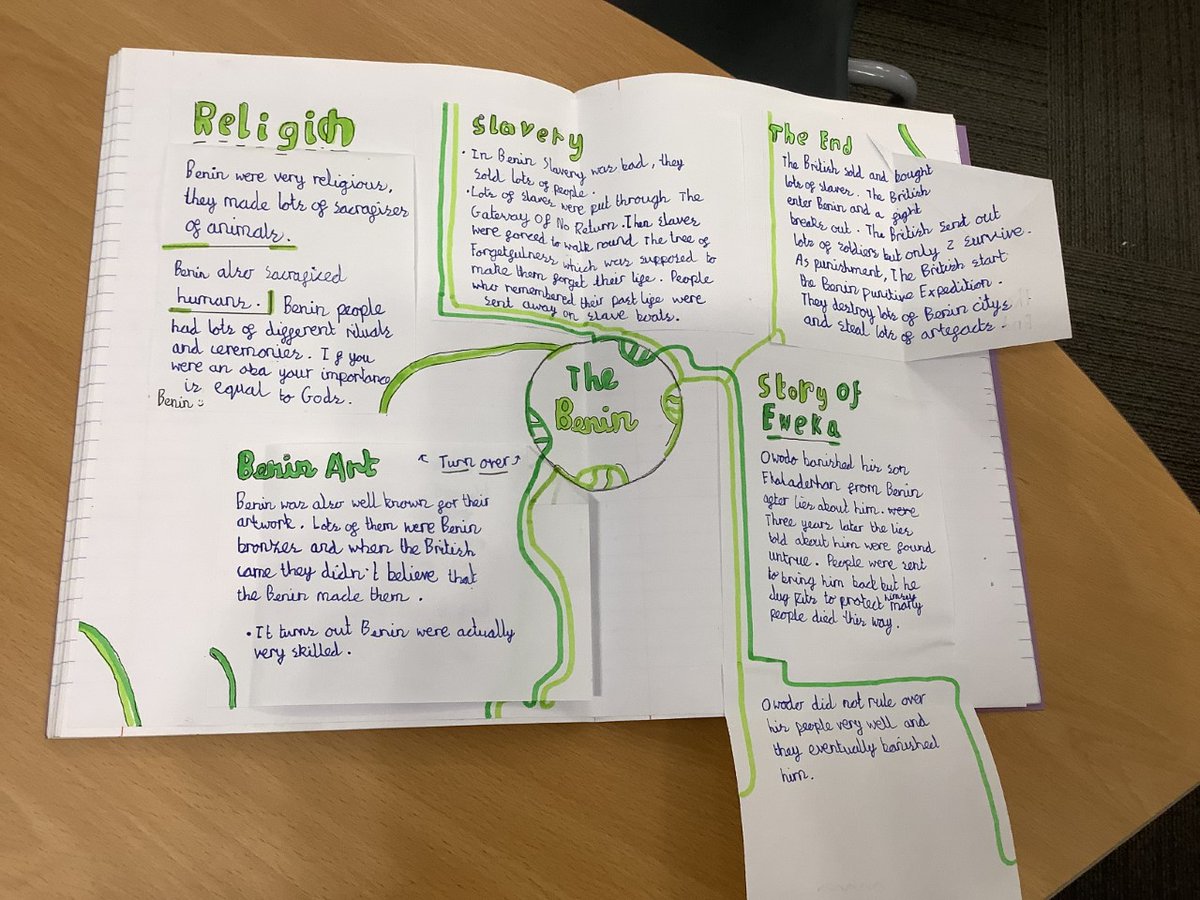 Religion
Benin were very religious,
they made lots of sacragises
of animals.
Benin also sacragised
humans. Benin people
had lots of different rituals
and ceremonies. If you
were an oba your importance
is equal to Gods.
Benin
Slavery
• In Benin Slavery was bad, they
sold lots of people.
• Lots of slaves were put through The
Gateway Of No Return. Then slaves
were forced to walk round the tree of
Forgetfulness which was supposed to
make them forget their life. People
who remembered their past life were
sent away on slave boats.
The End
The British sold and bought
lots of slaves. The British
enter Benin and a fight
breaks out. The British send out
lots of soldiers but only 2 survive.
As punishment, The British start
the Benin punitive Expedition.
They destroy lots of Benin citys
and steal lots of artefacts.
The
Benin
Benin Art
Turn over
Benin was also well known for their
artwork. Lots of them were Benin
bronzes and when the British
came they didn't believe that
the Benin made them.
• It turns out Benin were actually
very skilled.
Story of
Eweka
Owodo banished his son
Ekaladerhan from Benin
after lies about him. were
Three years later the lies
told about him were found
untrue. People were sent
to bring him back but he
dug pits to protect himself many
people died this way.
Owodo did not rule over
his people very well and
they eventually banished
him.